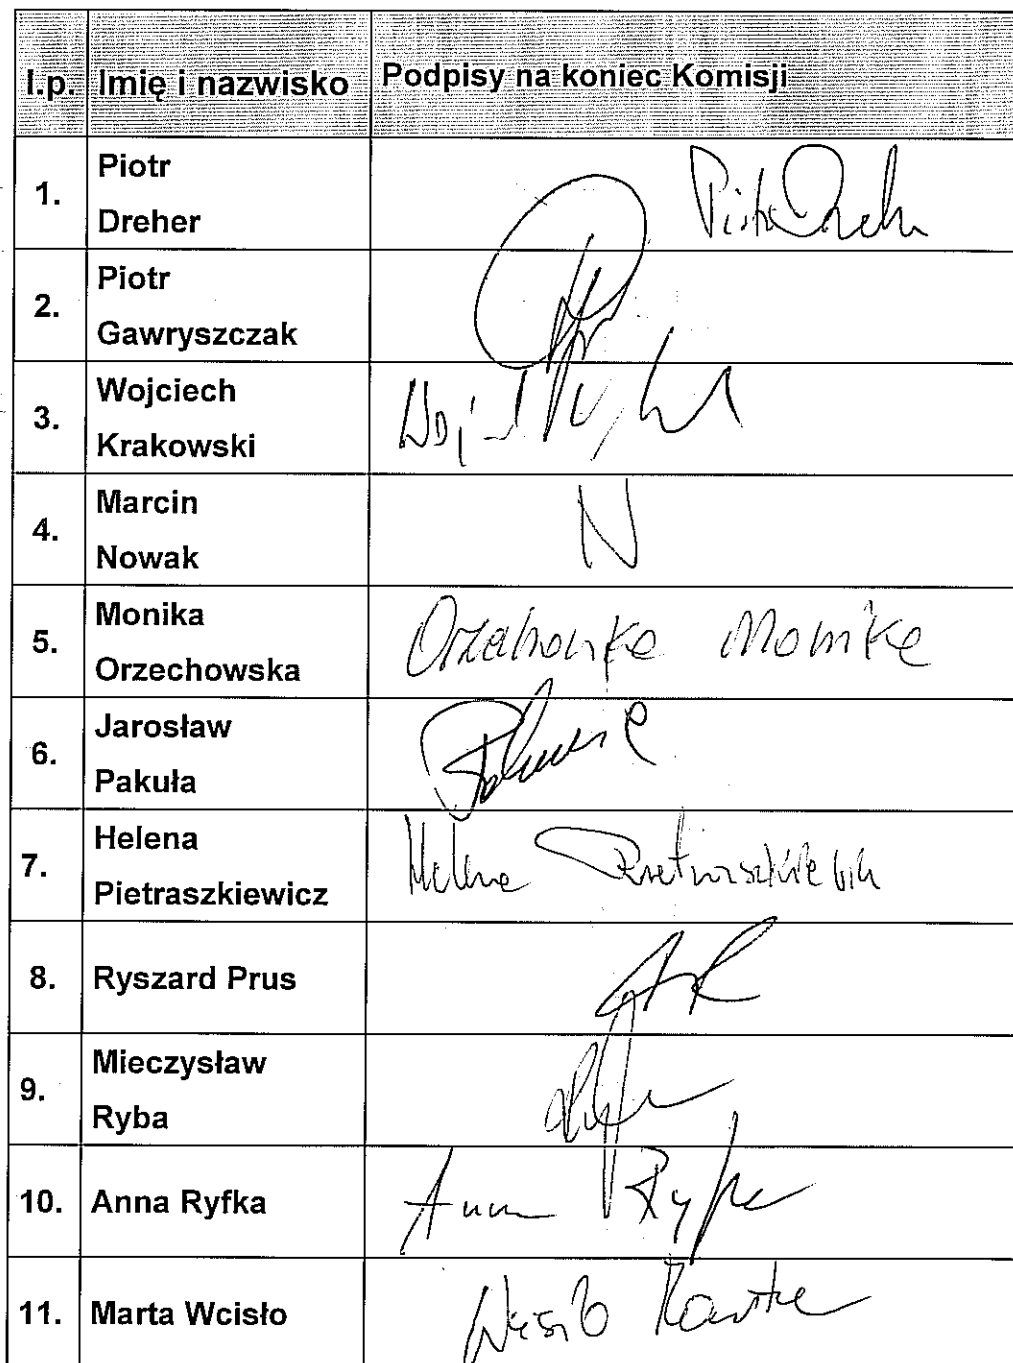 l.p. Imię i nazwisko Podpisy na koniec Komisji
1. Piotr
Dreher
2. Piotr
Gawryszczak
3. Wojciech
Krakowski
4. Marcin
Nowak
N
5. Monika
Orzechowska
Orzechowska Monika
6. Jarosław
Pakuła
7. Helena
Pietraszkiewicz
Helena Pietraszkiewicz
8. Ryszard Prus
9. Mieczysław
Ryba
10. Anna Ryfka Anna Ryfka
11. Marta Wcisło Wcisło Marta